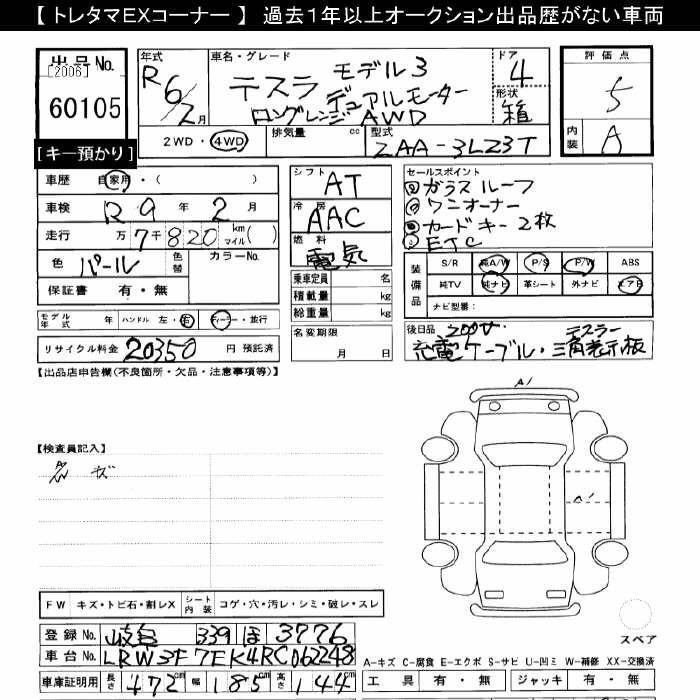 【 トレタマEXコーナー 】 過去1年以上オークション出品歴がない車両
出品No. [2006] 60105
【キー預かり】
年式 R6/2月
車名・グレード テスラ モデル3
ロングレンジ デュアルモーター AWD
ドア 4
形状 箱
評価点 5
内装 A
2WD・4WD 排気量 cc 型式 ZAA-3L23T
車歴 自家用・( )
車検 R9年2月
走行 万7千820 km マイル( )
色 パール 色替 カラーNo.
保証書 有・無
モデル年式 年 ハンドル 左・右 ディーラー・並行
リサイクル料金 20350 円 預託済
シフト AT
冷房 AAC
燃料 電気
乗車定員 名
積載量 kg
総重量 kg
名変期限
月 日
セールスポイント
ガラスルーフ
ワンオーナー
カードキー2枚
ETC
装備品 S/R 純A/W P/S P/W ABS
純TV 純ナビ 革シート 外ナビ エアB
ナビ型番:
後日品 200V テスラー
充電ケーブル・三角表示板
【出品店申告欄(不良箇所・欠品・注意事項等)】
【検査員記入】
A1
A1
FW キズ・トビ石・割レX シート内装 コゲ・穴・汚レ・シミ・破レ・スレ
スペア
登録No. 岐阜 339 ほ 3776
車台No. LRW3F7EK4RC062248
車庫証明用 長さ 472cm 幅 185cm 高さ 144cm
A-キズ C-腐食 E-エクボ S-サビ U-凹ミ W-補修 XX-交換済
工具 有・無 ジャッキ 有・無